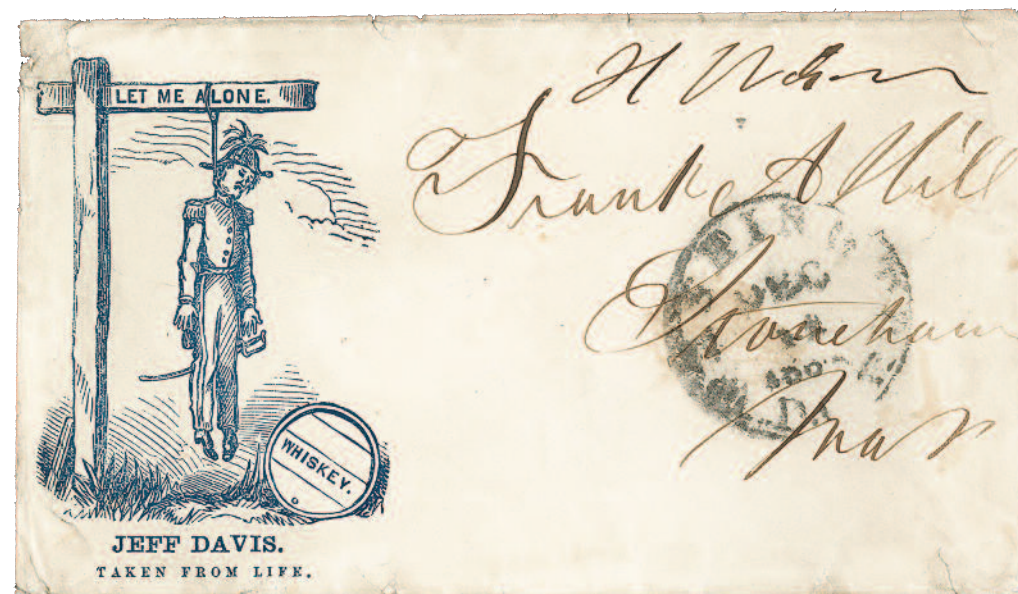 LET ME ALONE.
WHISKEY.
JEFF DAVIS.
TAKEN FROM LIFE.
Frank A Hill
Stoneham
Mas
DEC